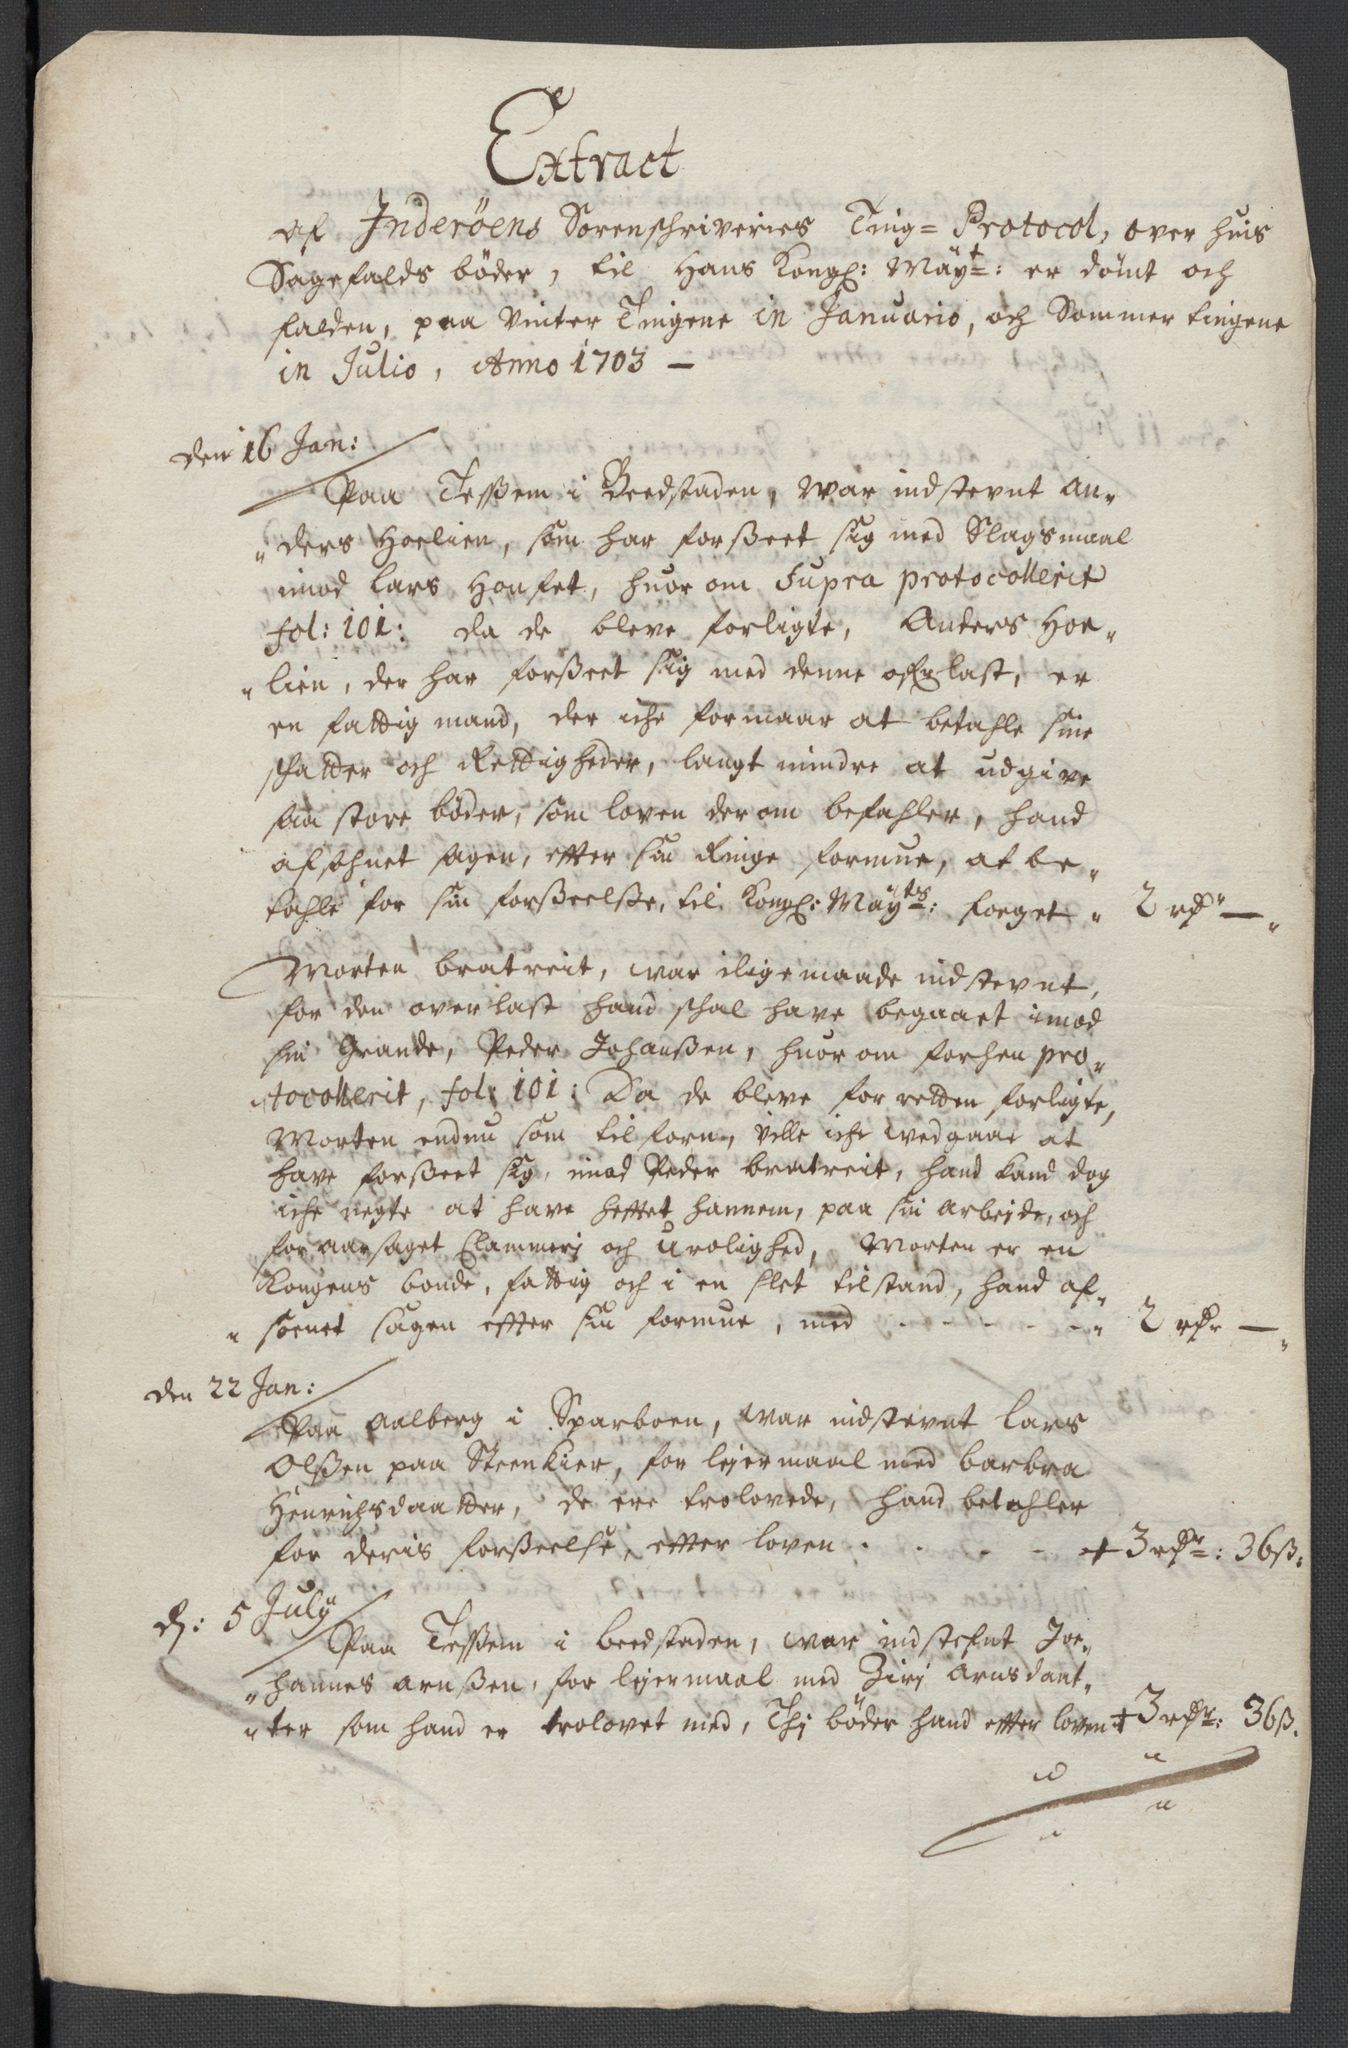 Extract
Af Inderöens Sorenschriveries Ting= Protocol, over huis
Sagefalds böder, til Hans Kongl: Mäyt: er dömt och
falden, paa Vinter Tingene in Januario, och Sommer tingene
in Julio, Anno 1703 —
den 16 Jan:
Paa Tessem i Beedstaden, war indstevnt An-
ders Hoelien, som har forsseet sig med Slagsmaal
imod Lars Honset, huor om Supra protocollerit
fol: 101: da de bleve forligte, Anders Hoe-
lien, der har forsseet sig med denne ofrlast, er
en fattig mand, der iche formaar at betahle sine
schatter och Rettigheder, langt mindre at udgive
saa store böder, som loven der om befahler, hand
afsohnet sagen, effter sin Ringe formue, at be-
tahle for sin forsseelsse, til Kongl: Mäyts: foeget " 2 rdr —
Morten bratreit, war iligemaade indstevnt,
for den overlast hand schal have begaaet imod
sin Grande, Peder Johanssen, huor om forhen pro-
tocollerit, fol: 101: Da de bleve for retten forligte,
Morten endnu som tilforn, ville iche wedgaae at
have forsseet sig, imod Peder bratreit, hand kand dog
iche negte at have hefftet hannem, paa sin arbejde, och
foraarsaget Clammerj och Urolighed, Morten er en
Kongens bonde, fattig och i en slet tilstand, hand af-
soenet sagen effter sin formue, med - - - - - " 2 rdr —
den 22 Jan:
Paa Aalberg i Sparboen, war indstevnt Lars
Olssen paa Steenkier, for lejermaal med barbra
Henrichsdaatter, de ere trolovede, hand betahler
for deris forsseelse, effter loven - - - - + 3 rdr: 36 ss:
d: 5 July
Paa Tessem i beedstaden, war indstefnt Joe-
hannes arnssen, for lejermaal med Zirj Arnsdaat-
ter som hand er trolovet med, Thj böder hand effter loven + 3 rdr: 36 ss.